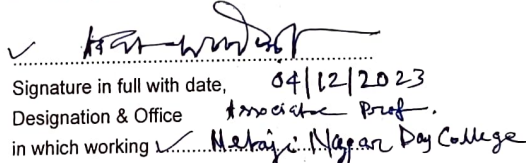 Signature in full with date, 04/12/2023
Designation & Office Associate Prof.
in which working ✓ Netaji Nagar Day College